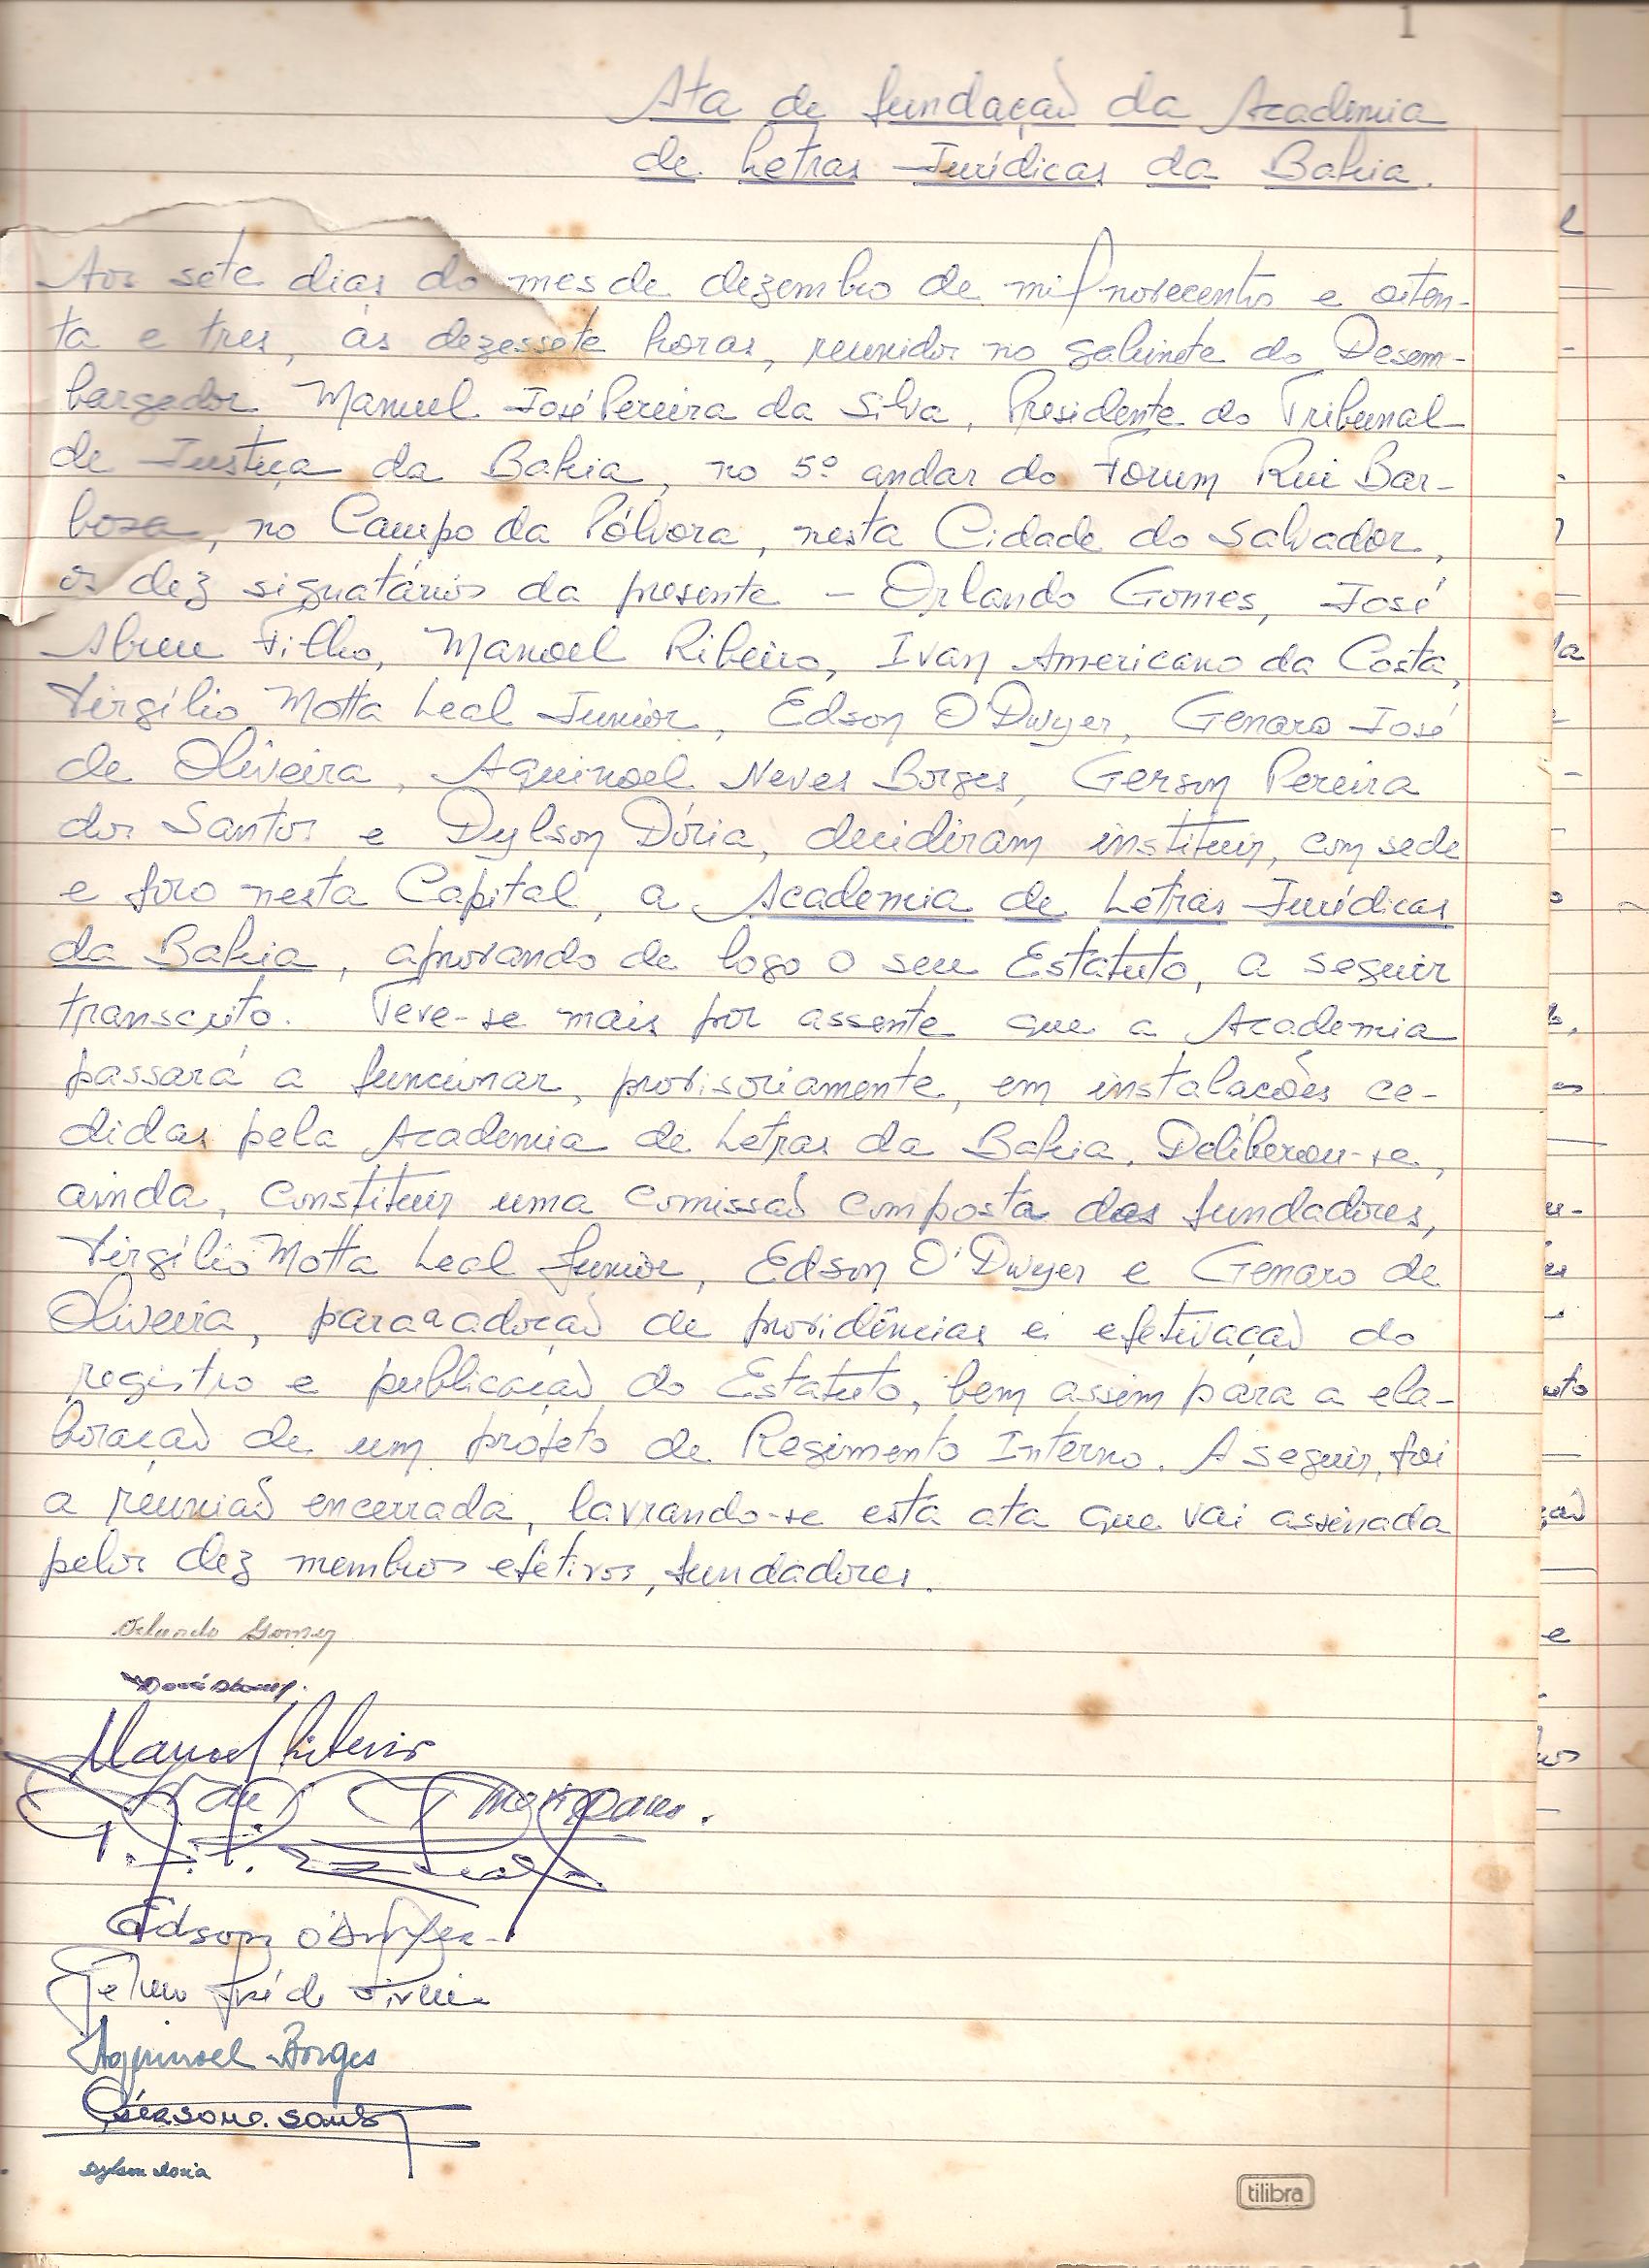 1
Ata de fundação da Academia
de Letras Jurídicas da Bahia.
Aos sete dias do mes de dezembro de mil novecentos e oiten-
ta e tres, às dezessete horas, reunidos no gabinete do Desem-
bargador Manuel José Pereira da Silva, Presidente do Tribunal
de Justiça da Bahia, no 5º andar do Forum Rui Bar-
bosa, no Campo da Pólvora, nesta Cidade do Salvador,
os dez signatários da presente - Orlando Gomes, José
Abreu Filho, Manoel Ribeiro, Ivan Americano da Costa,
Virgílio Motta Leal Junior, Edson O'Dwyer, Genaro José
de Oliveira, Aquinoel Neves Borges, Gerson Pereira
dos Santos e Dylson Dória, decidiram instituir, com sede
e foro nesta Capital, a Academia de Letras Jurídicas
da Bahia, aprovando de logo o seu Estatuto, a seguir
transcrito. Teve-se mais por assente que a Academia
passará a funcionar, provisoriamente, em instalações ce-
didas pela Academia de Letras da Bahia. Deliberou-se,
ainda, constituir uma comissão composta dos fundadores,
Virgílio Motta Leal Junior, Edson O'Dwyer e Genaro de
Oliveira, para a adoção de providências e efetivação do
registro e publicação do Estatuto, bem assim para a ela-
boração de um projeto de Regimento Interno. A seguir, foi
a reunião encerrada, lavrando-se esta ata que vai assinada
pelos dez membros efetivos, fundadores.
Orlando Gomes
Manoel Ribeiro
Edson O'Dwyer
Aquinoel Borges
Gerson P. Santos
Dylson Doria
tilibra